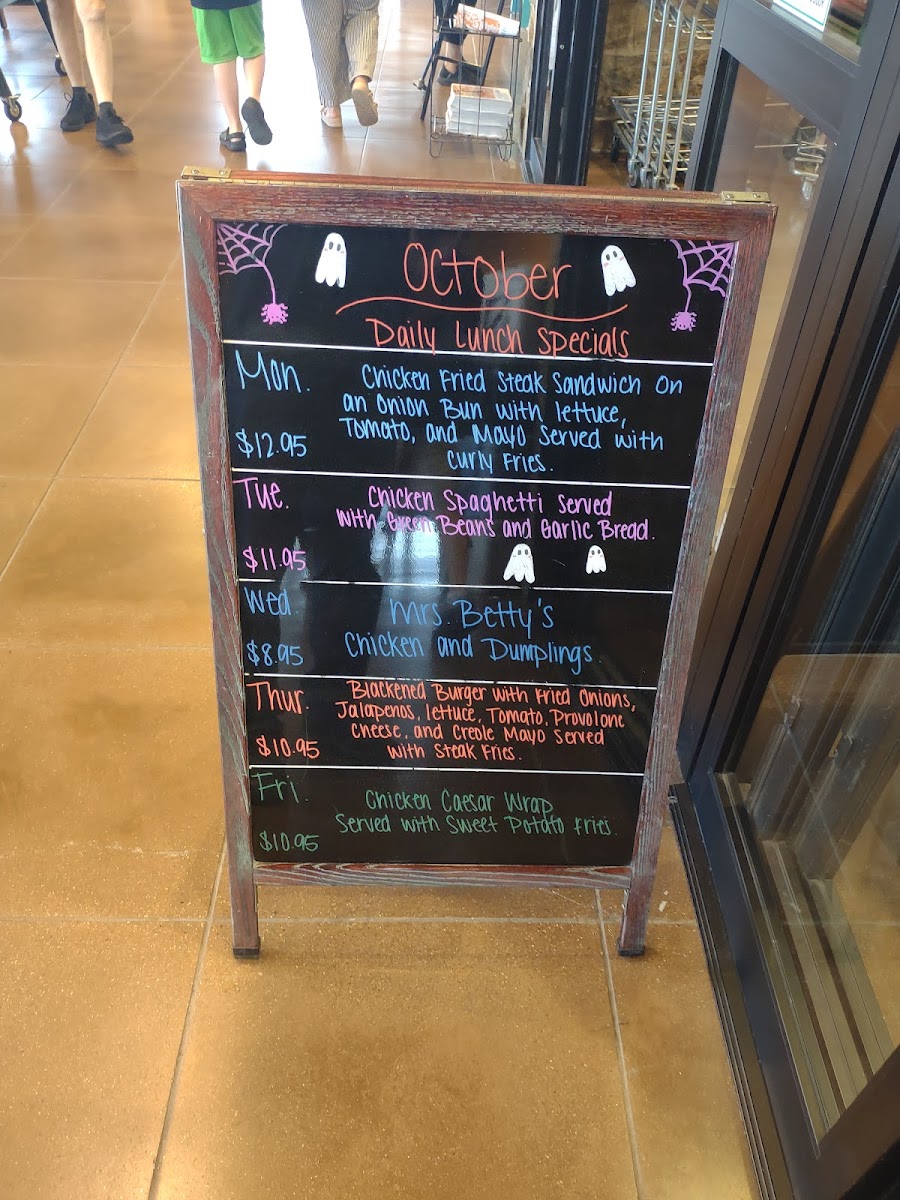 October
Daily Lunch Specials
Mon.
$12.95
Chicken Fried Steak Sandwich On
an Onion Bun with lettuce,
Tomato, and Mayo Served with
Curly Fries.
Tue.
$11.95
Chicken Spaghetti Served
with Green Beans and Garlic Bread.
Wed.
$8.95
Mrs. Betty's
Chicken and Dumplings.
Thur.
$10.95
Blackened Burger with Fried Onions,
Jalapenos, lettuce, Tomato, Provolone
Cheese, and Creole Mayo Served
with Steak Fries.
Fri.
$10.95
Chicken Caesar Wrap
Served with Sweet Potato Fries.